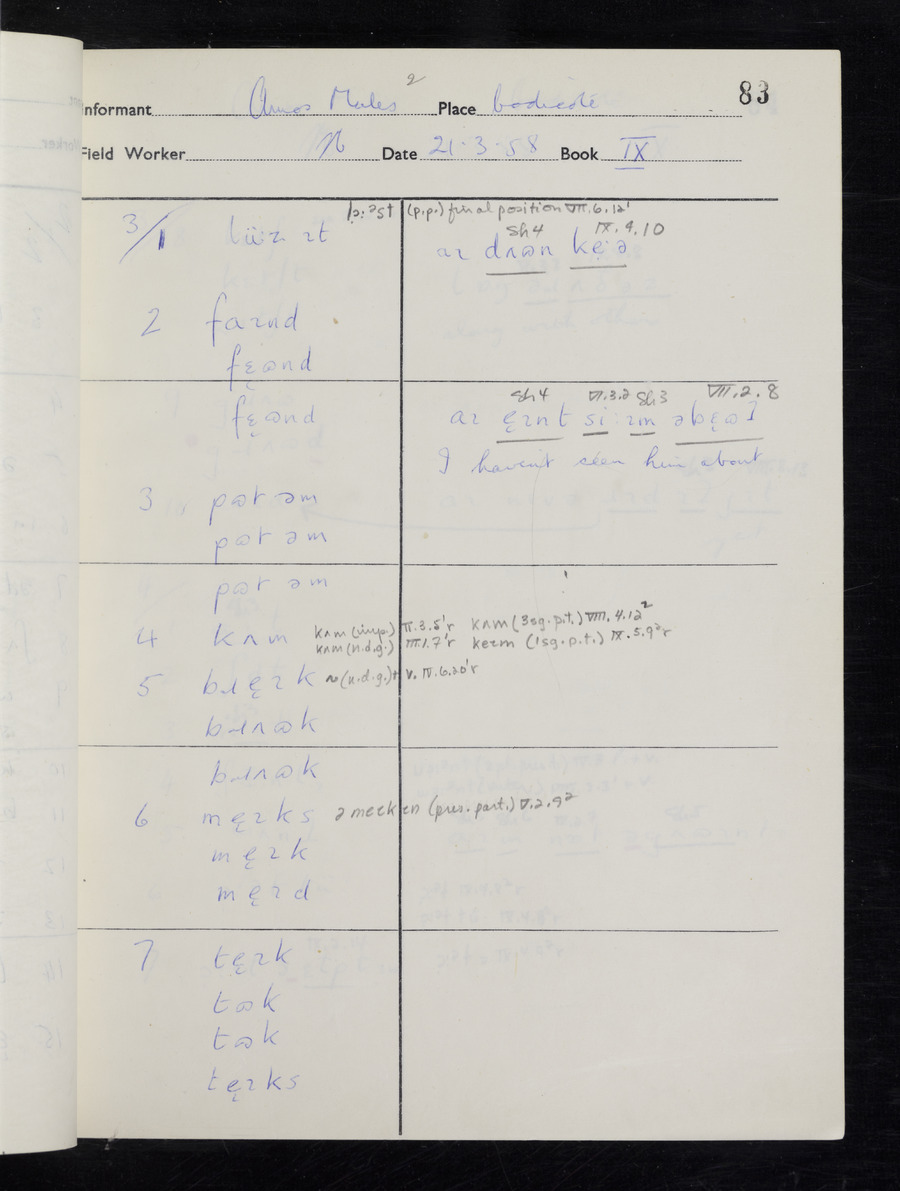 83
Informant Amos Mules 2 Place bodicote
Field Worker Date 21.3.58 Book IX
(p.p.) final position VII.6.12¹
Sh4 IX.4.10
3/1 lüːz ɪt aɪ dʌʊn keːə
2 faɪnd
fɛ̨ʊnd
Sh4 VI.3.2 Sh3 VIII.2.8
fɛ̨ʊnd
I haven't seen him about
3 pʊt əm
pʊt əm
pʊt əm
4 kʌm kʌm (imp.) II.3.5¹r kʌm (3sg.p.t.) VIII.4.12²
kʌm (n.d.g.) III.1.7¹r keɪm (1sg.p.t.) IX.5.9²r
5 bɹɛ̨ɪk ~ (n.d.g.) + v. IV.6.20¹r
bɹʌʊk
bɹʌʊk
6 mɛ̨ɪks ə meɪkɪn (pres. part.) V.2.9²
mɛ̨ɪk
mɛ̨ɪd
7 tɛ̨ɪk
tʊk
tʊk
tɛ̨ɪks